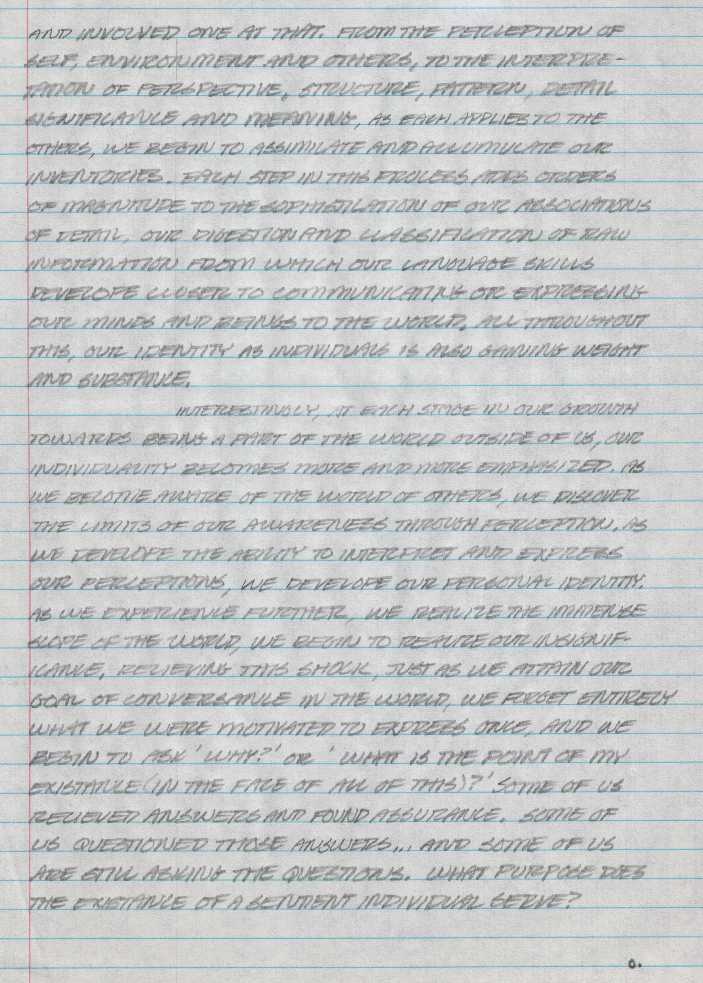 AND INVOLVED ONE AT THAT. FROM THE PERCEPTION OF
SELF, ENVIRONMENT AND OTHERS, TO THE INTERPRE-
TATION OF PERSPECTIVE, STRUCTURE, PATTERN, DETAIL
SIGNIFICANCE AND MEANING, AS EACH APPLIES TO THE
OTHERS, WE BEGIN TO ASSIMILATE AND ACCUMULATE OUR
INVENTORIES. EACH STEP IN THIS PROCESS ADDS ORDERS
OF MAGNITUDE TO THE SOPHISTICATION OF OUR ASSOCIATIONS
OF DETAIL, OUR DIGESTION AND CLASSIFICATION OF RAW
INFORMATION FROM WHICH OUR LANGUAGE SKILLS
DEVELOPE CLOSER TO COMMUNICATING OR EXPRESSING
OUR MINDS AND BEINGS TO THE WORLD. ALL THROUGHOUT
THIS, OUR IDENTITY AS INDIVIDUALS IS ALSO GAINING WEIGHT
AND SUBSTANCE.
INTERESTINGLY, AT EACH STAGE IN OUR GROWTH
TOWARDS BEING A PART OF THE WORLD OUTSIDE OF US, OUR
INDIVIDUALITY BECOMES MORE AND MORE EMPHASIZED. AS
WE BECOME AWARE OF THE WORLD OF OTHERS, WE DISCOVER
THE LIMITS OF OUR AWARENESS THROUGH PERCEPTION. AS
WE DEVELOPE THE ABILITY TO INTERPRET AND EXPRESS
OUR PERCEPTIONS, WE DEVELOPE OUR PERSONAL IDENTITY.
AS WE EXPERIENCE FURTHER, WE REALIZE THE IMMENSE
SCOPE OF THE WORLD, WE BEGIN TO REALIZE OUR INSIGNIF-
ICANCE. RECIEVING THIS SHOCK, JUST AS WE ATTAIN OUR
GOAL OF CONVERSANCE IN THE WORLD, WE FORGET ENTIRELY
WHAT WE WERE MOTIVATED TO EXPRESS ONCE, AND WE
BEGIN TO ASK 'WHY?' OR 'WHAT IS THE POINT OF MY
EXISTANCE (IN THE FACE OF ALL OF THIS)?' SOME OF US
RECIEVED ANSWERS AND FOUND ASSURANCE. SOME OF
US QUESTIONED THOSE ANSWERS... AND SOME OF US
ARE STILL ASKING THE QUESTIONS. WHAT PURPOSE DOES
THE EXISTANCE OF A SENTIENT INDIVIDUAL SERVE?